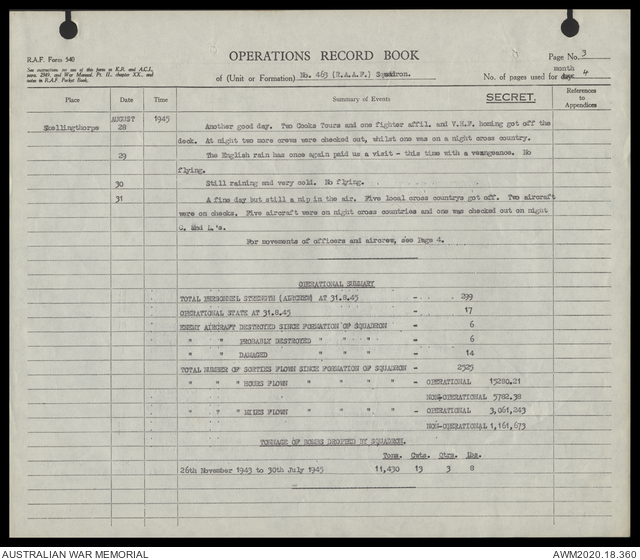 R.A.F. Form 540
See instructions for use of this form in K.R. and A.C.I.,
para. 2349, and War Manual, Pt. II., chapter XX., and
notes in R.A.F. Pocket Book.
OPERATIONS RECORD BOOK
of (Unit or Formation) No. 463 (R.A.A.F.) Squadron.
Page No. 3
No. of pages used for day month 4
Place Date Time Summary of Events SECRET. References to Appendices
AUGUST 1945
Skellingthorpe 28 Another good day. Two Cooks Tours and one fighter affil. and V.H.F. homing got off the
deck. At night two more crews were checked out, whilst one was on a night cross country.
29 The English rain has once again paid us a visit - this time with a vengeance. No
flying.
30 Still raining and very cold. No flying.
31 A fine day but still a nip in the air. Five local cross countrys got off. Two aircraft
were on checks. Five aircraft were on night cross countries and one was checked out on night
C. and L's.
For movements of officers and aircrew, see Page 4.
OPERATIONAL SUMMARY
TOTAL PERSONNEL STRENGTH (AIRCREW) AT 31.8.45 - 299
OPERATIONAL STATE AT 31.8.45 - 17
ENEMY AIRCRAFT DESTROYED SINCE FORMATION OF SQUADRON - 6
" " PROBABLY DESTROYED " " " - 6
" " DAMAGED " " " - 14
TOTAL NUMBER OF SORTIES FLOWN SINCE FORMATION OF SQUADRON - 2525
" " " HOURS FLOWN " " " " - OPERATIONAL 15280.21
NON-OPERATIONAL 5782.38
" " " MILES FLOWN " " " " - OPERATIONAL 3,061,243
NON-OPERATIONAL 1,161,673
TONNAGE OF BOMBS DROPPED BY SQUADRON.
Tons. Cwts. Qtrs. Lbs.
26th November 1943 to 30th July 1945 11,430 13 3 8
AUSTRALIAN WAR MEMORIAL
AWM2020.18.360